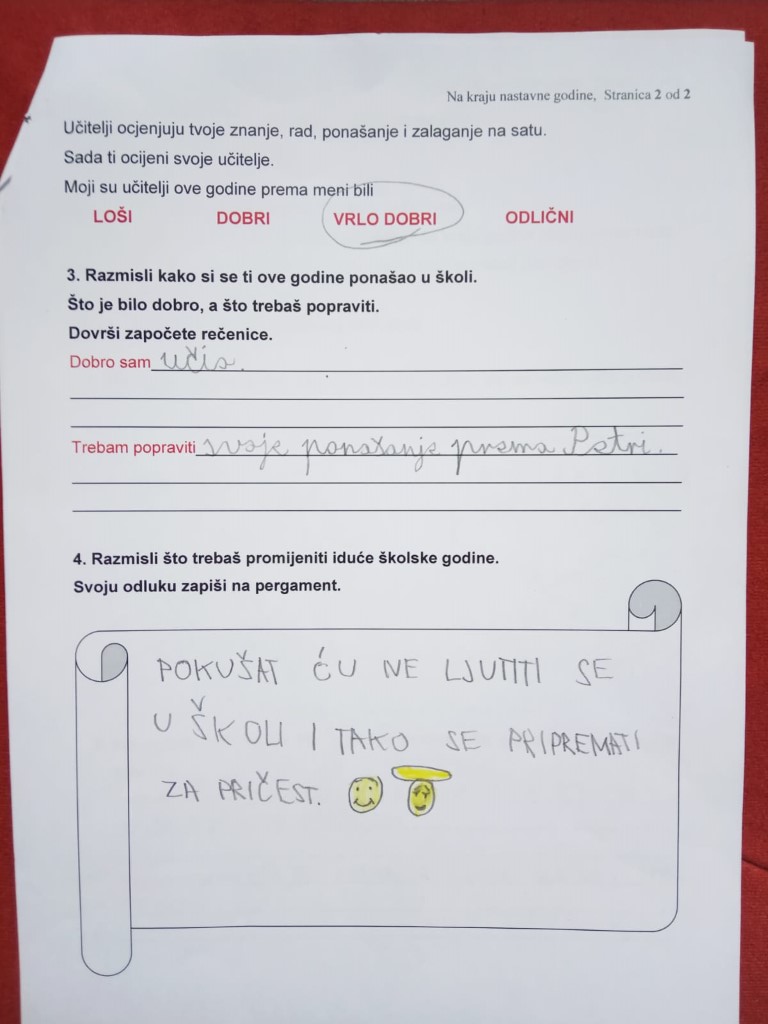 Na kraju nastavne godine, Stranica 2 od 2
Učitelji ocjenjuju tvoje znanje, rad, ponašanje i zalaganje na satu.
Sada ti ocijeni svoje učitelje.
Moji su učitelji ove godine prema meni bili
LOŠI DOBRI VRLO DOBRI ODLIČNI
3. Razmisli kako si se ti ove godine ponašao u školi.
Što je bilo dobro, a što trebaš popraviti.
Dovrši započete rečenice.
Dobro sam učio.
Trebam popraviti svoje ponašanje prema Petri.
4. Razmisli što trebaš promijeniti iduće školske godine.
Svoju odluku zapiši na pergament.
POKUŠAT ĆU NE LJUTITI SE
U ŠKOLI I TAKO SE PRIPREMATI
ZA PRIČEST.